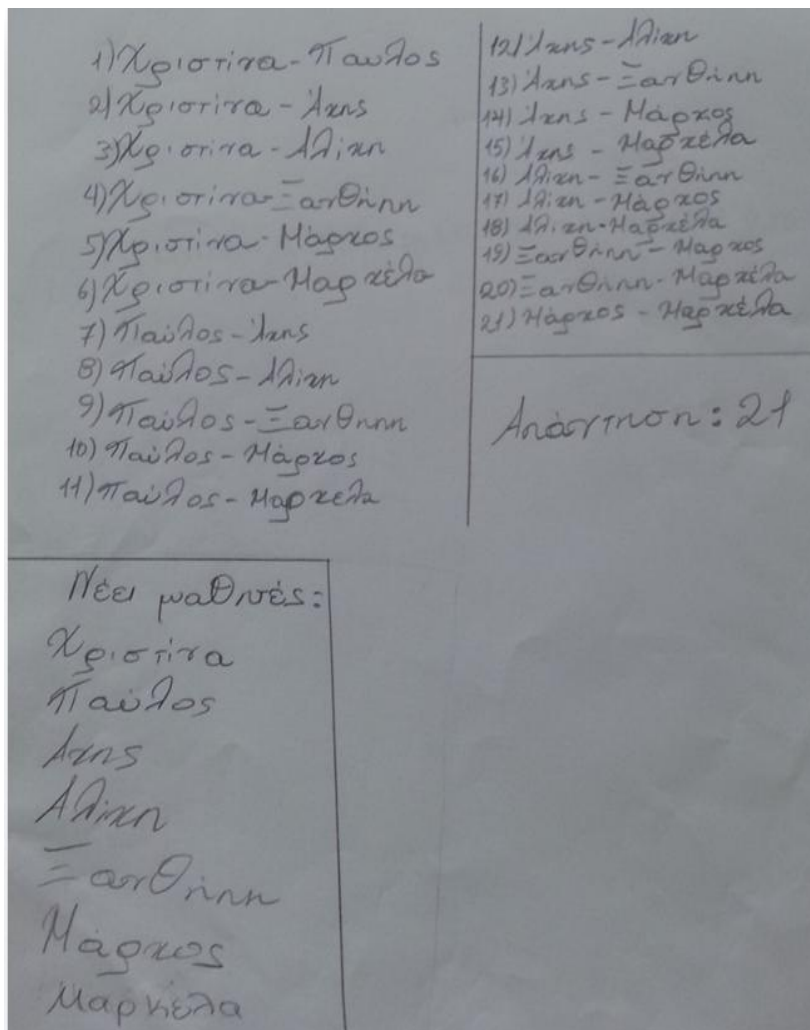 1) Χριστίνα - Παύλος
2) Χριστίνα - Άκης
3) Χριστίνα - Αλίκη
4) Χριστίνα - Ξανθήπη
5) Χριστίνα - Μάρκος
6) Χριστίνα - Μαρκέλα
7) Παύλος - Άκης
8) Παύλος - Αλίκη
9) Παύλος - Ξανθήπη
10) Παύλος - Μάρκος
11) Παύλος - Μαρκέλα
12) Άκης - Αλίκη
13) Άκης - Ξανθήπη
14) Άκης - Μάρκος
15) Άκης - Μαρκέλα
16) Αλίκη - Ξανθήπη
17) Αλίκη - Μάρκος
18) Αλίκη - Μαρκέλα
19) Ξανθήπη - Μάρκος
20) Ξανθήπη - Μαρκέλα
21) Μάρκος - Μαρκέλα
Απάντηση: 21
Νέει μαθητές:
Χριστίνα
Παύλος
Άκης
Αλίκη
Ξανθήπη
Μάρκος
Μαρκέλα